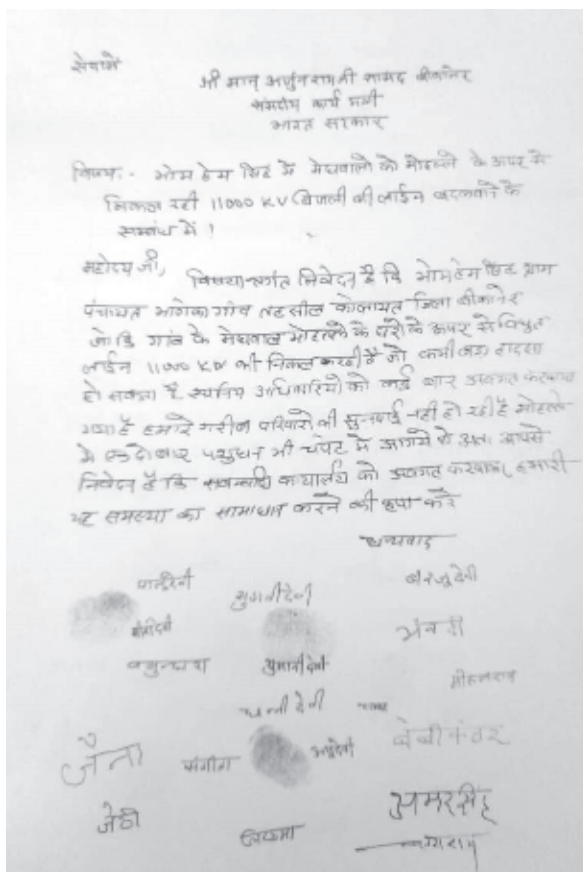 सेवामें
श्री मान् अर्जुनरामजी सांसद बीकानेर
संसदीय कार्य मंत्री
भारत सरकार
विषय:- भोम हेम सिट में मेघवालो को मोहल्ले के ऊपर से
निकल रही 11000 KV बिजली की लाईन बदलवाने के
सम्बंध में।
महोदय जी,
विषयान्तर्गत निवेदन है कि ग्राम
पंचायत गांव तहसील कोलायत जिला बीकानेर
जोकि गांव के मेघवाल मोहल्ले के घरो के ऊपर से विधुत
लाईन 11000 KV की निकल रही है जो कभी बड़ा हादसा
हो सकता है स्थानिय अधिकारियो को कई बार अवगत करवाया
गया है हमारे गरीब परिवारो की सुनवाई नही हो रही है मोहल्ले
मे एक दो बार पशुधन भी चपेट में आगये थे अतः आपसे
निवेदन है कि कार्यालय को अवगत करवाकर हमारी
यह समस्या का सामाधान करने की कृपा करे
धन्यवाद
सुगनी देवी
भंवरी
मोहनराम
जैना
बेबी कंवर
जेठी
अमरसिंह
लिछमा